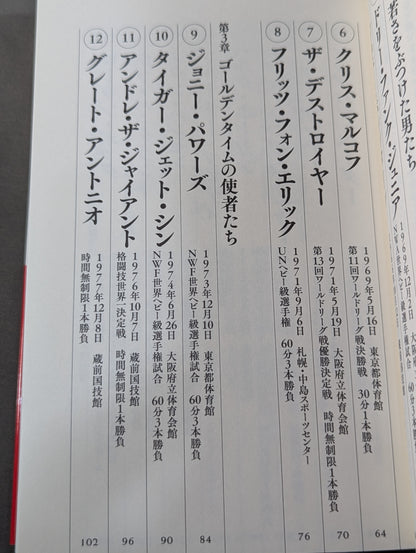 若さをぶつけた男たち
ドリー・ファンク・ジュニア
1969年12月
NWF世界
⑥ クリス・マルコフ
1969年5月16日 東京都体育館
第11回ワールドリーグ戦決勝戦 30分1本勝負
64
⑦ ザ・デストロイヤー
1971年5月19日 大阪府立体育会館
第13回ワールドリーグ戦優勝決定戦 時間無制限1本勝負
70
⑧ フリッツ・フォン・エリック
1971年9月6日 札幌・中島スポーツセンター
UNヘビー級選手権 60分3本勝負
76
第3章 ゴールデンタイムの使者たち
⑨ ジョニー・パワーズ
1973年12月10日 東京都体育館
NWF世界ヘビー級選手権試合 60分3本勝負
84
⑩ タイガー・ジェット・シン
1974年6月26日 大阪府立体育会館
NWF世界ヘビー級選手権試合 60分3本勝負
90
⑪ アンドレ・ザ・ジャイアント
1976年10月7日 蔵前国技館
格闘技世界一決定戦 時間無制限1本勝負
96
⑫ グレート・アントニオ
1977年12月8日 蔵前国技館
時間無制限1本勝負
102